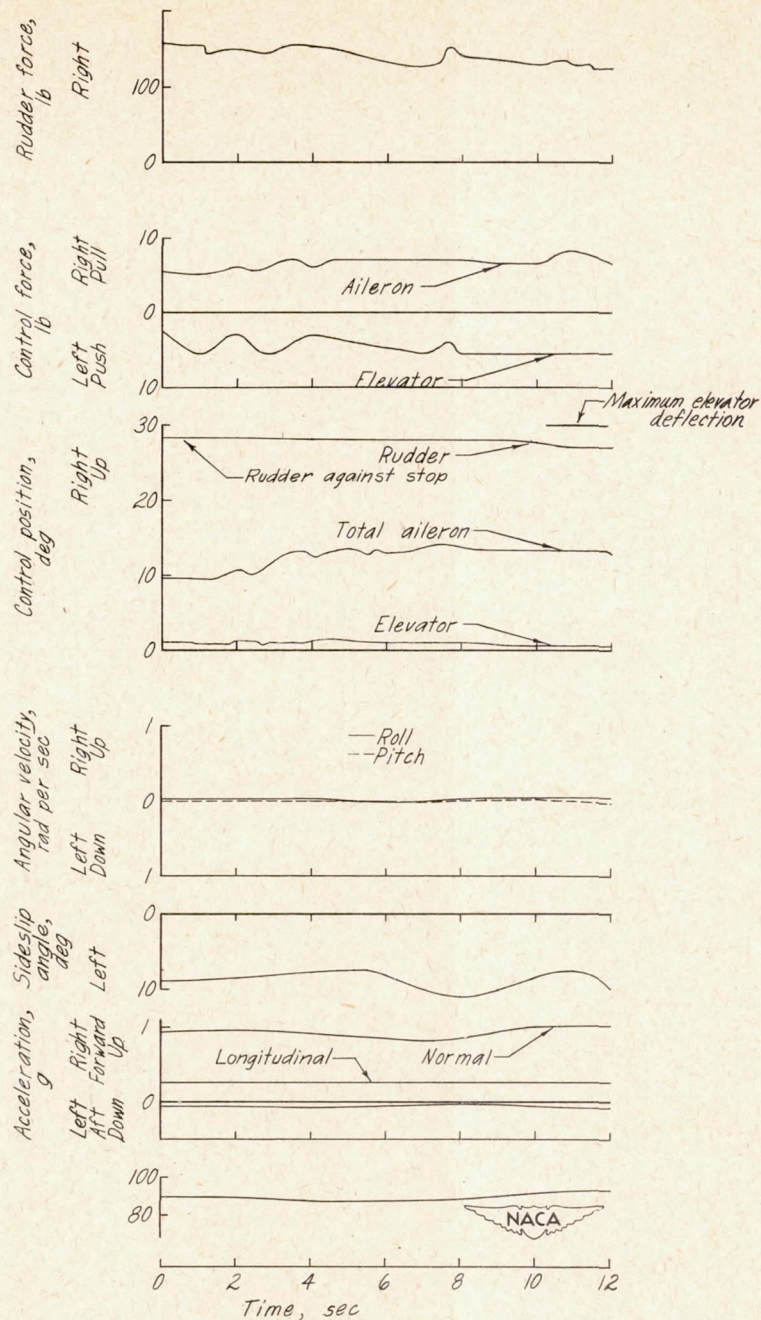 Rudder force,
lb
Right
100
0
Control force,
lb
Right
Pull
Left
Push
10
0
10
Aileron
Elevator
Maximum elevator
deflection
Control position,
deg
Right
Up
30
20
10
0
Rudder
Rudder against stop
Total aileron
Elevator
Angular velocity,
rad per sec
Right
Up
Left
Down
1
0
1
Roll
Pitch
Sideslip
angle,
deg
Left
0
10
Acceleration,
g
Right
Forward
Up
Left
Aft
Down
1
0
Longitudinal
Normal
100
80
NACA
0 2 4 6 8 10 12
Time, sec